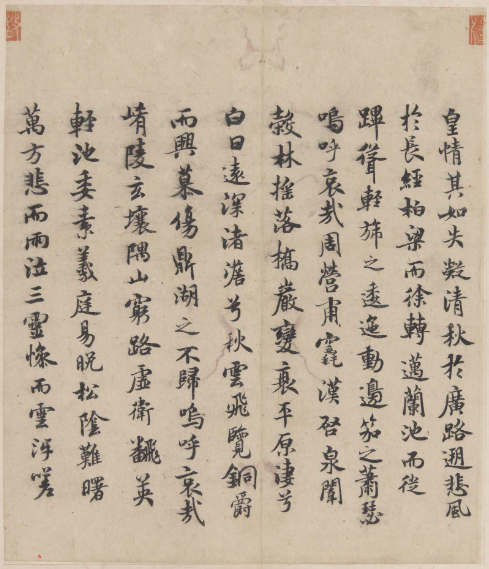 皇情其如失凝清秋於廣路遡悲風
於長經柏梁而徐轉邁蘭池而從
蹕聳輕旆之逶迤動邊笳之蕭瑟
嗚呼哀哉周營甫竁漢啓泉闈
穀林搖落橋巖變衰平原悽兮
白日遠深渚澹兮秋雲飛覽銅爵
而興慕傷鼎湖之不歸嗚呼哀哉
崤陵玄壤隅山窮路虛衛翻英
輕池委素羲庭易晚松陰難曙
萬方悲而雨泣三靈慘而雲沍嗟